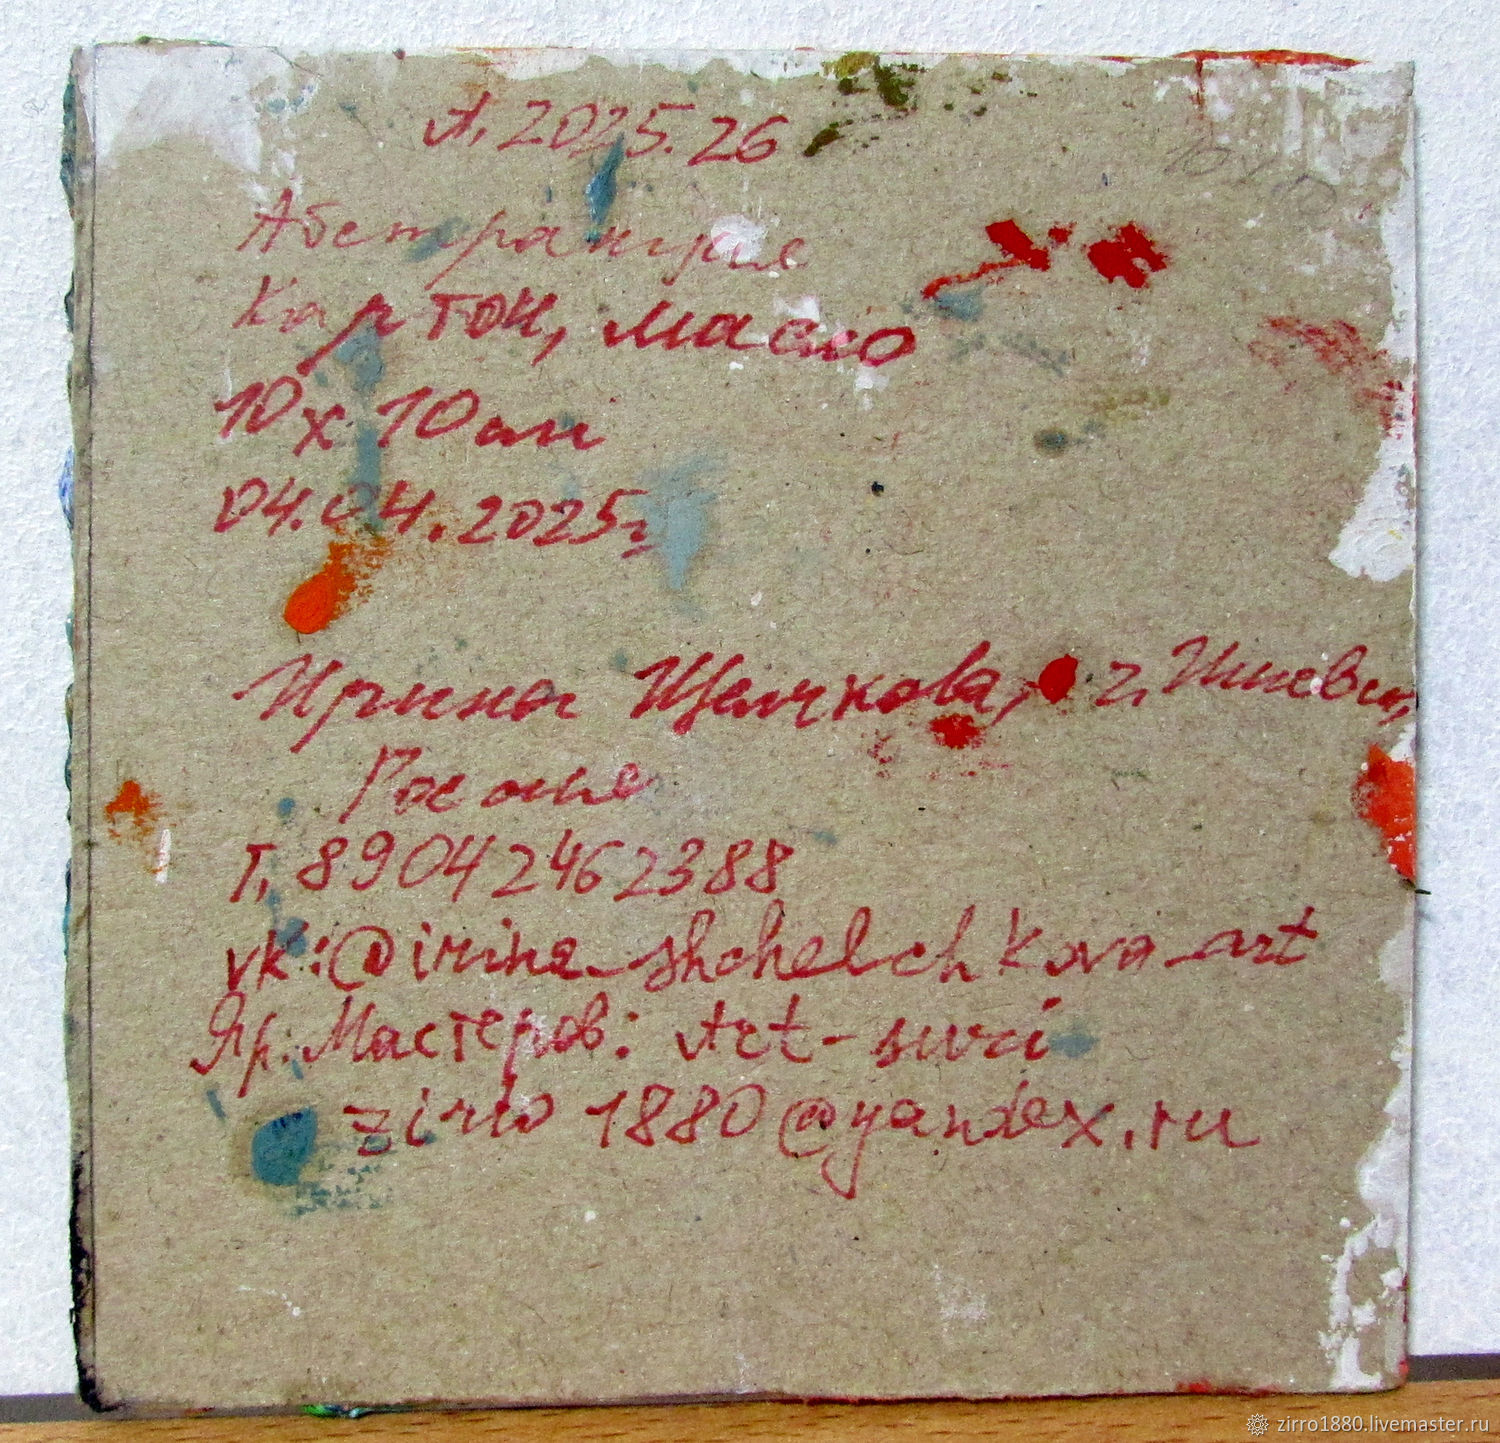 А. 2025.26
Абстракция
Картон, масло
10х10см
04.04.2025г
Ирина Щелчкова, г. Ижевск,
Россия
т. 89042462388
vk:@irina_shchelchkova_art
Яр. Мастеров: Art-suri
zirro1880@yandex.ru
zirro1880.livemaster.ru